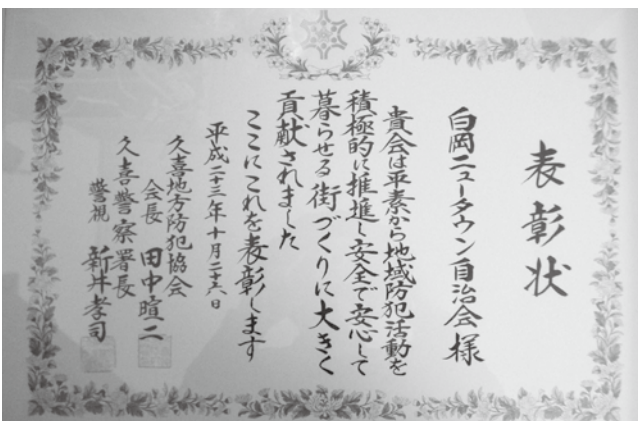 表彰状
白岡ニュータウン自治会様
貴会は平素から地域防犯活動を
積極的に推進し安全で安心して
暮らせる街づくりに大きく
貢献されました
ここにこれを表彰します
平成二十三年十月二十六日
久喜地方防犯協会
会長 田中暄二
久喜警察署長
警視 新井孝司